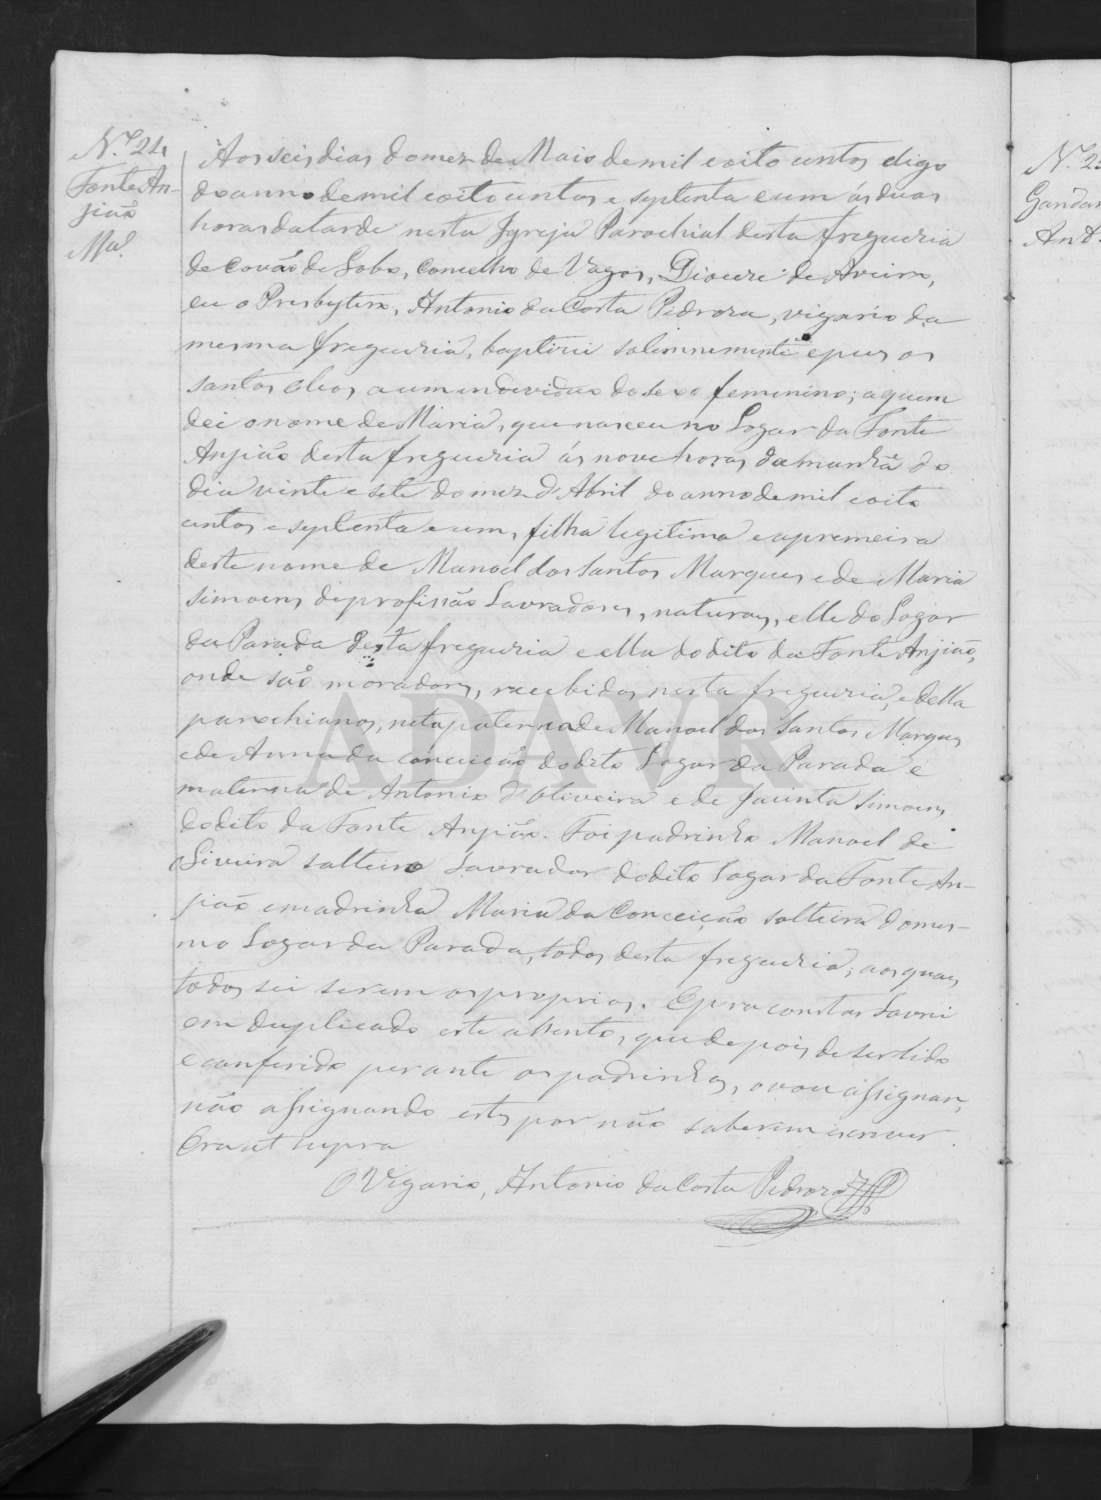 N.º 21
Fonte An-
jião
M.ª
Aos seis dias do mez de Maio de mil e oito centos digo
do anno de mil e oito centos e septenta e um ás duas
horas da tarde nesta Igreja Parochial desta freguezia
de Covão do Lobo, Concelho de Vagos, Diocese de Aveiro,
eu o Presbytero, Antonio da Costa Pedroza, vigario da
mesma freguezia, baptizei solemnemente e puz os
santos oleos a um individuo do sexo femenino; a quem
dei o nome de Maria, que nasceu no Logar da Fonte
Anjião desta freguezia ás nove horas da manhã do
dia vinte e sete do mez d'Abril do anno de mil e oito
centos e septenta e um, filha legitima e a premeira
deste nome de Manoel dos Santos Marques e de Maria
Simoens de profissão Lavradores, naturaes, elle do Logar
da Parada desta freguezia e ella do dito da Fonte Anjião,
onde são moradores, recebidos nesta freguezia, e della
parochianos, neta paterna de Manoel dos Santos Marques
e de Anna da Conceição do dito Logar da Parada e
materna de Antonio d'Oliveira e de Jacinta Simoens
do dito da Fonte Anjião. Foi padrinho Manoel de
Oliveira solteiro Lavrador do dito Logar da Fonte An-
jião e madrinha Maria da Conceição solteira do mes-
mo Logar da Parada, todos desta freguezia; aos quaes
todos sei serem os proprios. E para constar lavrei
em duplicado este assento, que depois de ser lido
e conferido perante os padrinhos, o vou assignar,
não assignando estes por não saberem escrever.
Era ut supra
O Vigario, Antonio da Costa Pedroza
N.º 2
Gandar
Ant.
ADAVR